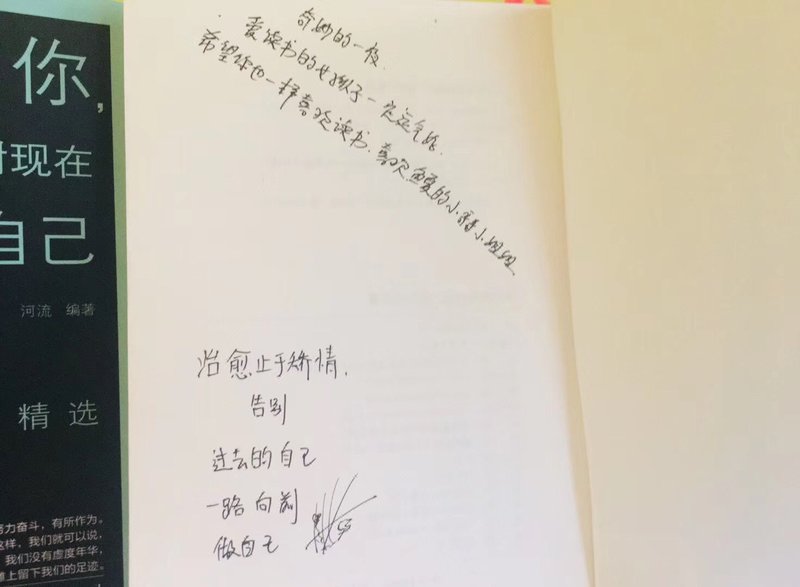 你,
现在
自己
河流 编著
精选
努力奋斗，有所作为。
这样，我们就可以说，
我们没有虚度年华，
上留下我们的足迹。
奇妙的一夜.
爱读书的女孩子一定运气好.
希望你也一样喜欢读书.喜欢鱼的小小姐姐
治愈止于矫情.
告别
过去的自己
一路向前
做自己